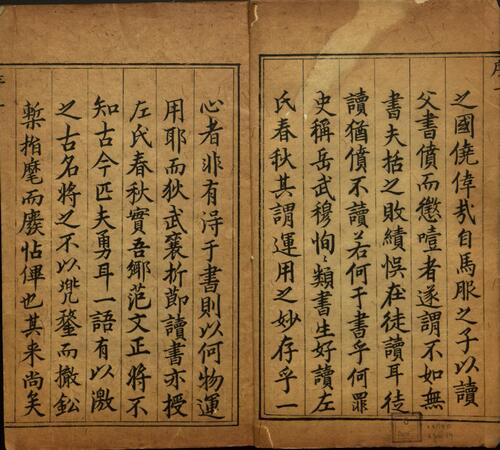 之國僥偉㦲自馬服之子以讀
父書僨而懲噎者遂謂不如無
書夫括之敗績悞在徒讀耳徒
讀猶僨不讀若何于書乎何罪
史稱岳武穆恂〻類書生好讀左
氏春秋其謂運用之妙存乎一
心者非有淂于書則以何物運
用耶而狄武襄折節讀書亦授
左氏春秋實吾鄉范文正將不
知古今匹夫勇耳一語有以激
之古名將之不以兠鍪而撤鈆
槧指麾而廢帖俾也其来尚矣